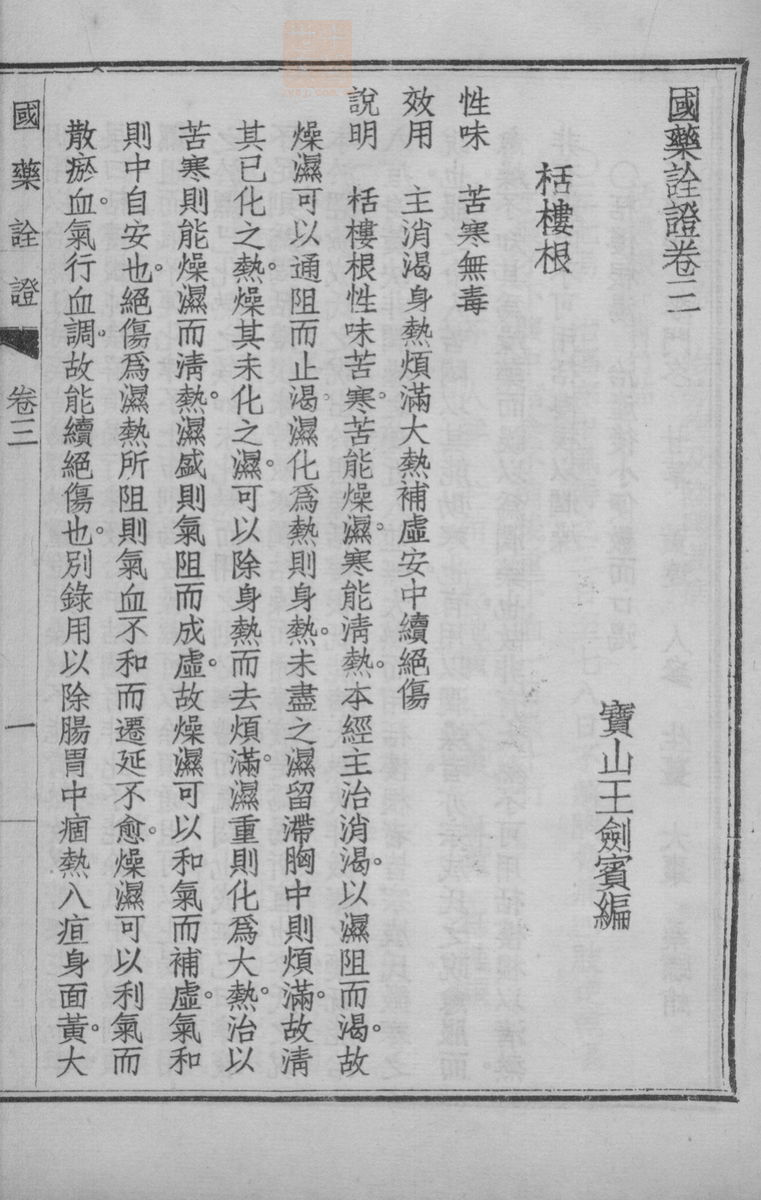 國藥詮證卷三
寶山王劍賓編
栝樓根
性味　苦寒無毒
效用　主消渴身熱煩滿大熱補虛安中續絕傷
說明　栝樓根性味苦寒。苦能燥濕。寒能淸熱。本經主治消渴。以濕阻而渴。故
燥濕可以通阻而止渴。濕化爲熱則身熱。未盡之濕留滯胸中則煩滿。故淸
其已化之熱。燥其未化之濕。可以除身熱而去煩滿。濕重則化爲大熱。治以
苦寒則能燥濕而淸熱。濕盛則氣阻而成虛。故燥濕可以和氣而補虛。氣和
則中自安也。絕傷爲濕熱所阻則氣血不和而遷延不愈。燥濕可以利氣而
散瘀血。氣行血調。故能續絕傷也。別錄用以除腸胃中痼熱八疸身面黃。大
國藥詮證　卷三　一